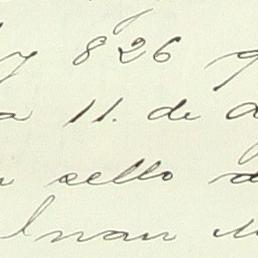 y 826
a 11. de
sello
Juan